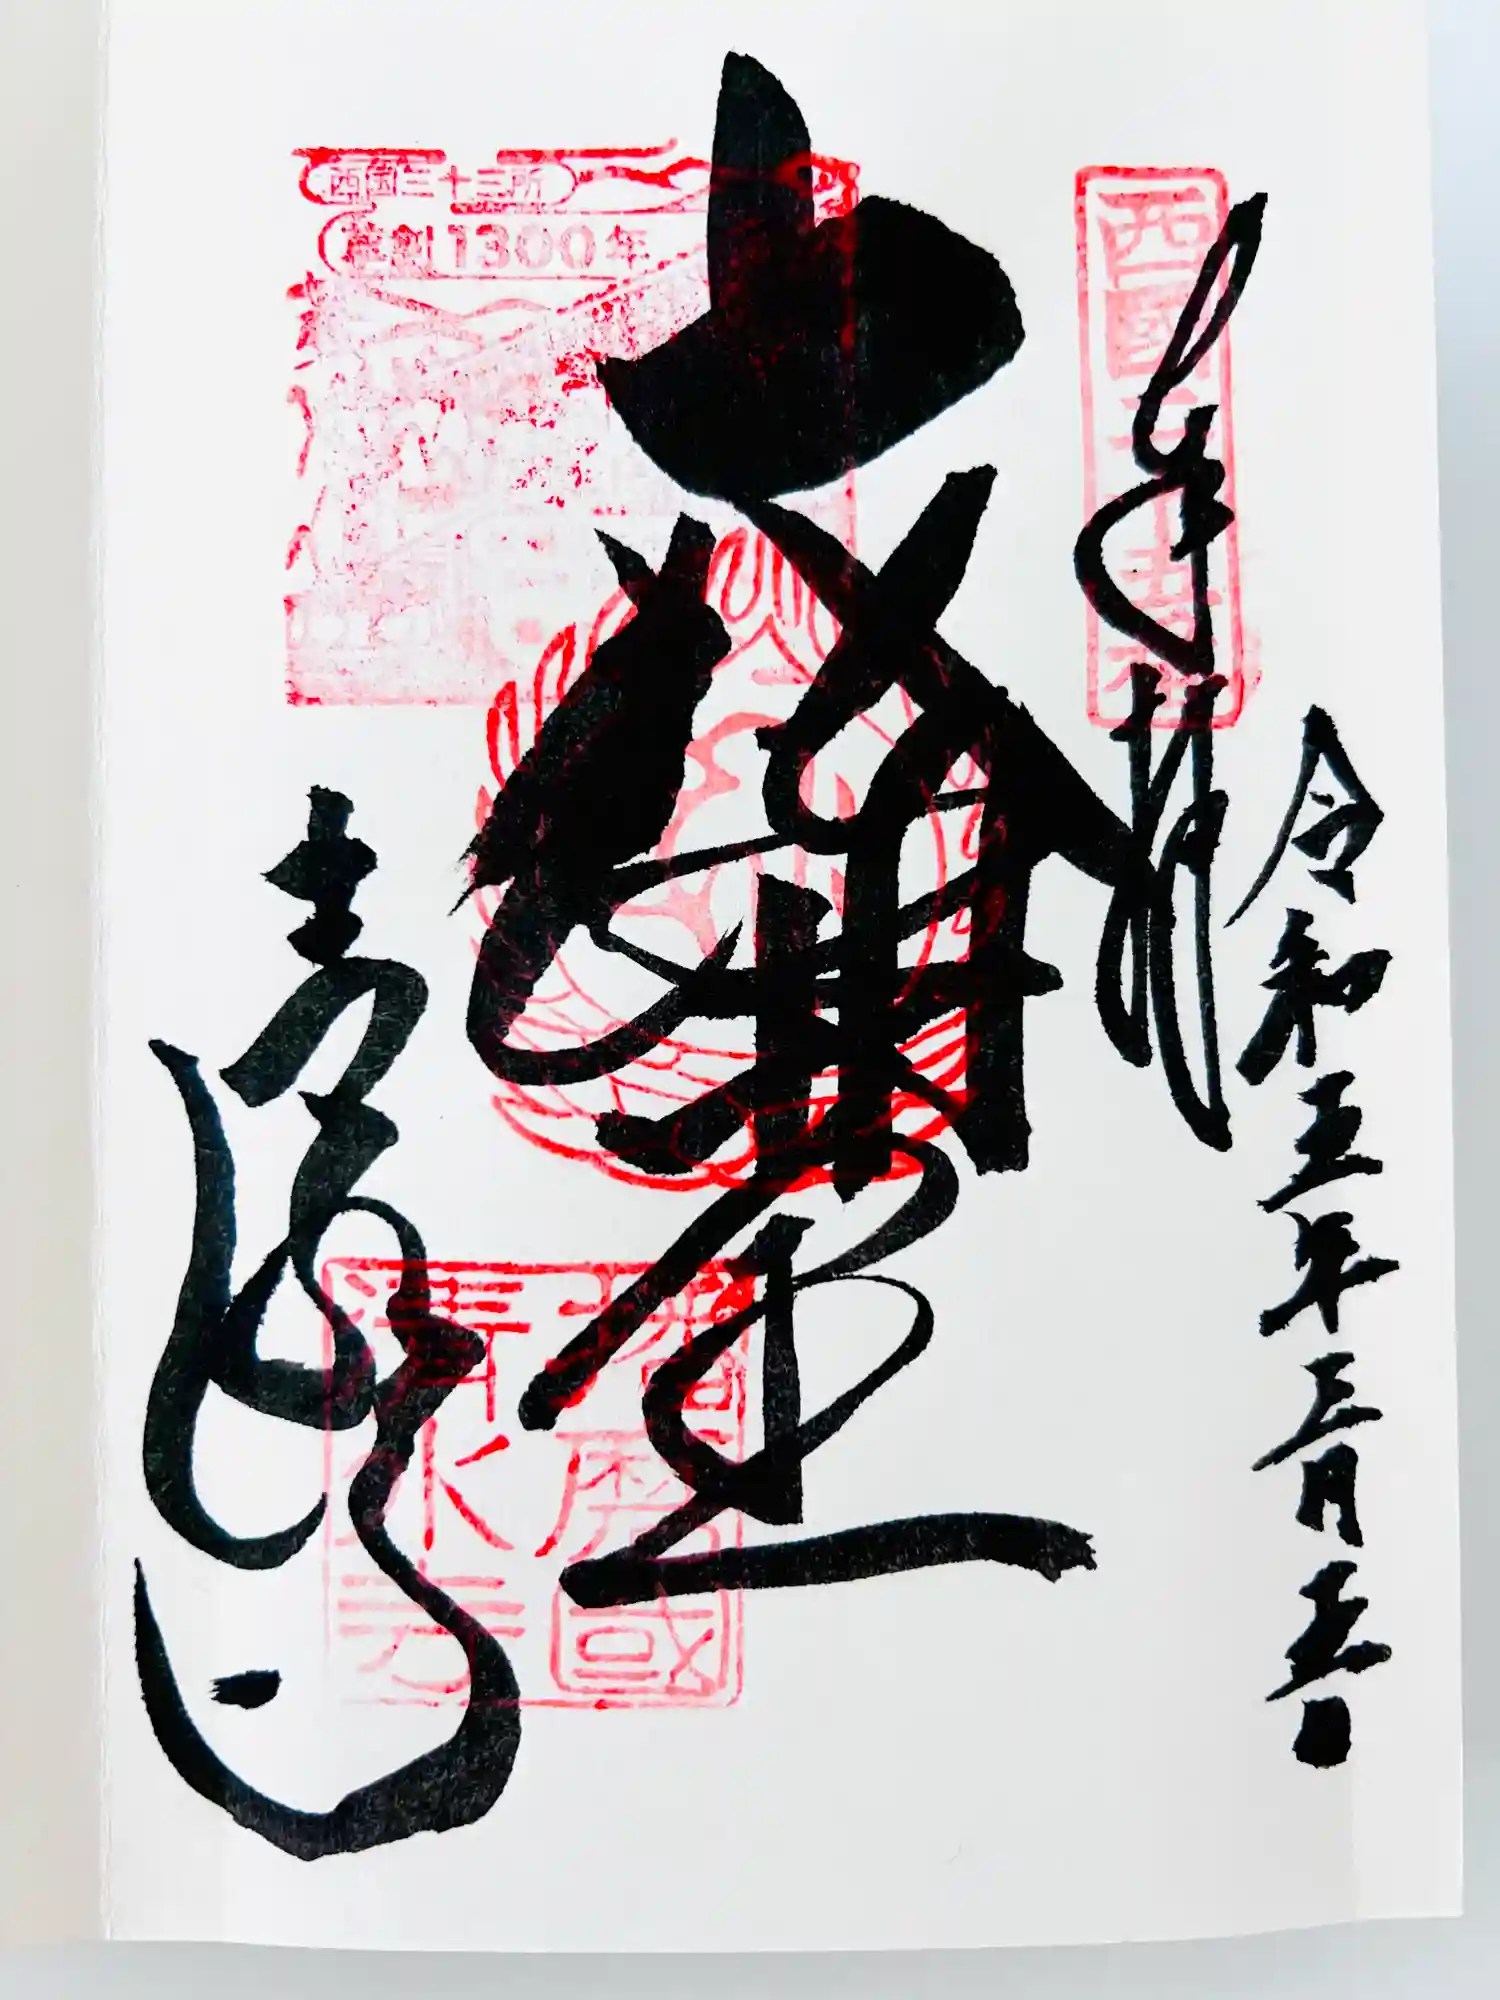 令和五年三月五日
奉拝
西國二十五番
大講堂
西国三十三所
草創1300年
清水寺
播磨國
清水寺